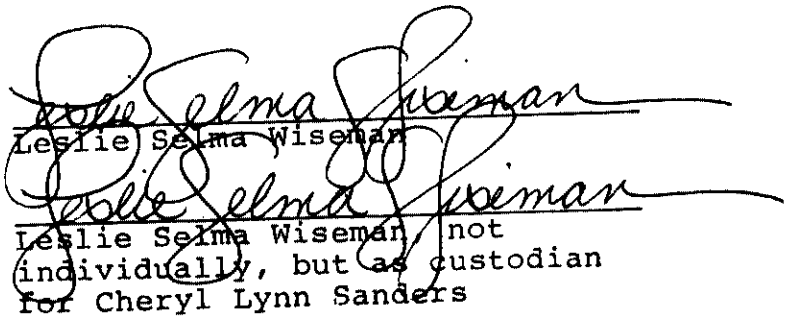 Leslie Selma Wiseman
Leslie Selma Wiseman
Leslie Selma Wiseman
Leslie Selma Wiseman, not
individually, but as custodian
for Cheryl Lynn Sanders